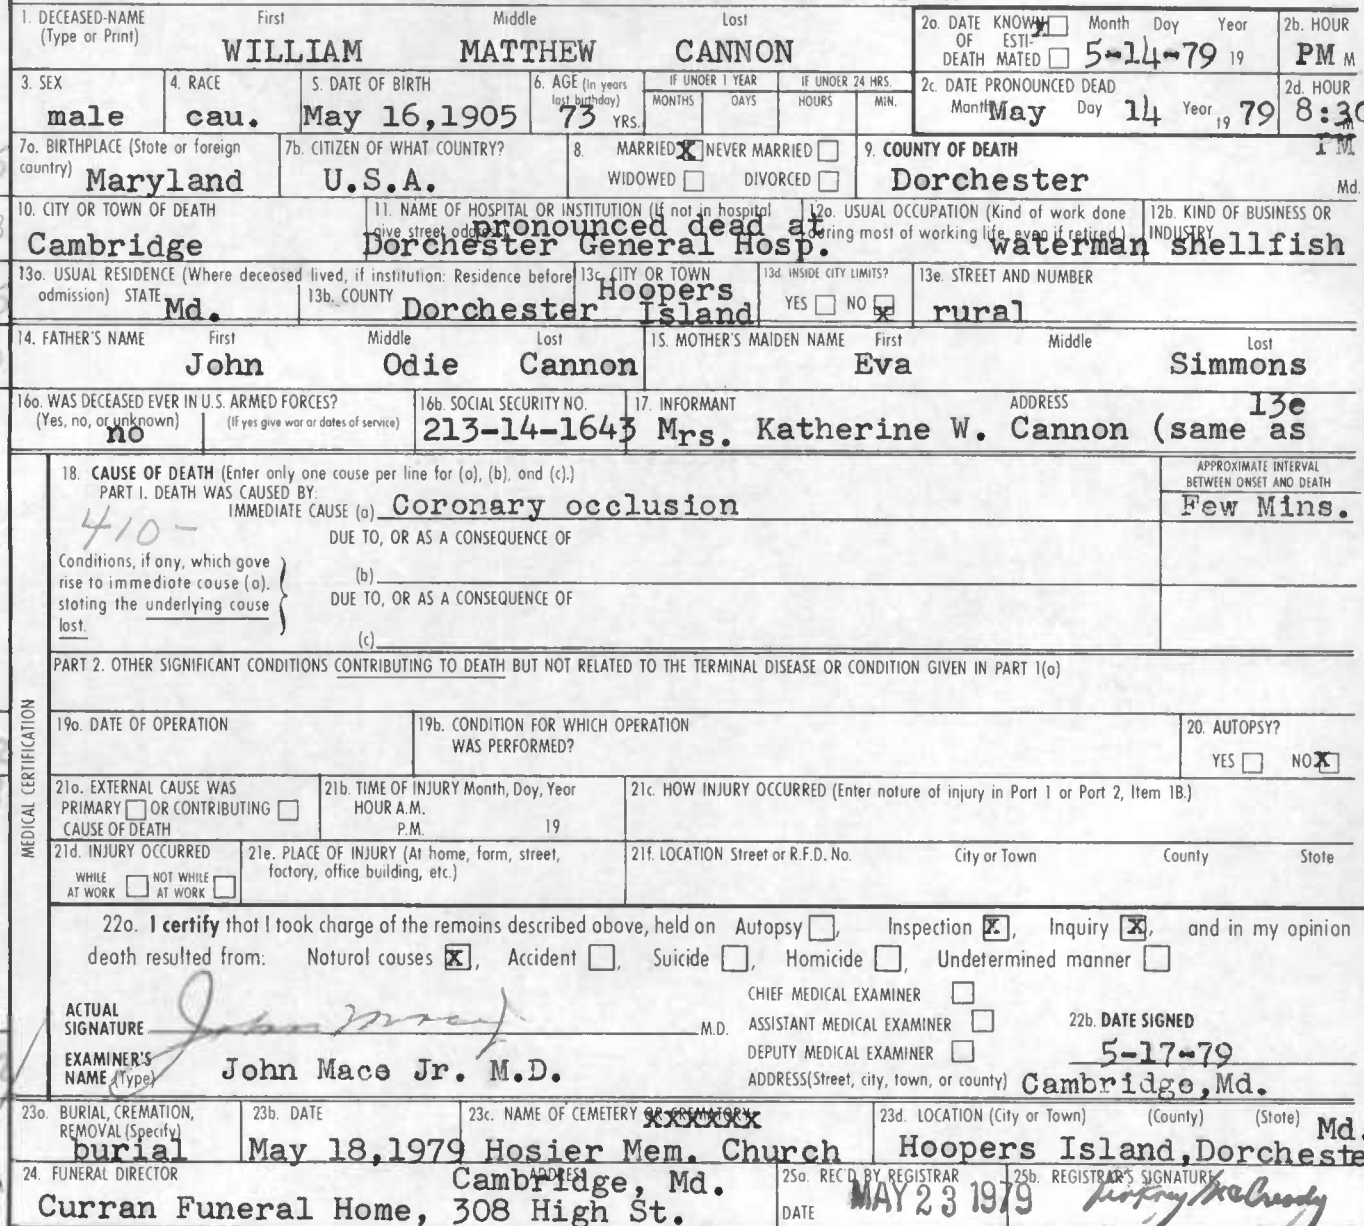 1. DECEASED-NAME First Middle Last
(Type or Print)
WILLIAM MATTHEW CANNON
2a. DATE KNOWN X Month Day Year
OF ESTI-
DEATH MATED 5-14-79 19
2b. HOUR
PM M
3. SEX
male
4. RACE
cau.
5. DATE OF BIRTH
May 16,1905
6. AGE (In years
last birthday)
73 YRS.
IF UNDER 1 YEAR
MONTHS DAYS
IF UNDER 24 HRS.
HOURS MIN.
2c. DATE PRONOUNCED DEAD
Month May Day 14 Year 19 79
2d. HOUR
8:30 M
PM
7a. BIRTHPLACE (State or foreign
country) Maryland
7b. CITIZEN OF WHAT COUNTRY?
U.S.A.
8. MARRIED X NEVER MARRIED
WIDOWED DIVORCED
9. COUNTY OF DEATH
Dorchester Md.
10. CITY OR TOWN OF DEATH
Cambridge
11. NAME OF HOSPITAL OR INSTITUTION (If not in hospital
give street address) pronounced dead at
Dorchester General Hosp.
12a. USUAL OCCUPATION (Kind of work done
during most of working life, even if retired)
waterman
12b. KIND OF BUSINESS OR
INDUSTRY
shellfish
13a. USUAL RESIDENCE (Where deceased lived, if institution: Residence before
admission) STATE Md.
13b. COUNTY Dorchester
13c. CITY OR TOWN
Hoopers
Island
13d. INSIDE CITY LIMITS?
YES NO X
13e. STREET AND NUMBER
rural
14. FATHER'S NAME First Middle Last
John Odie Cannon
15. MOTHER'S MAIDEN NAME First Middle Last
Eva Simmons
16a. WAS DECEASED EVER IN U.S. ARMED FORCES?
(Yes, no, or unknown) (If yes give war or dates of service)
no
16b. SOCIAL SECURITY NO.
213-14-1643
17. INFORMANT ADDRESS
13e
Mrs. Katherine W. Cannon (same as
MEDICAL CERTIFICATION
18. CAUSE OF DEATH (Enter only one cause per line for (a), (b), and (c).)
PART I. DEATH WAS CAUSED BY:
IMMEDIATE CAUSE (a) Coronary occlusion
APPROXIMATE INTERVAL
BETWEEN ONSET AND DEATH
Few Mins.
410-
DUE TO, OR AS A CONSEQUENCE OF
Conditions, if any, which gave
rise to immediate cause (a),
stating the underlying cause
last.
(b)
DUE TO, OR AS A CONSEQUENCE OF
(c)
PART 2. OTHER SIGNIFICANT CONDITIONS CONTRIBUTING TO DEATH BUT NOT RELATED TO THE TERMINAL DISEASE OR CONDITION GIVEN IN PART 1(a)
19a. DATE OF OPERATION
19b. CONDITION FOR WHICH OPERATION
WAS PERFORMED?
20. AUTOPSY?
YES NO X
21a. EXTERNAL CAUSE WAS
PRIMARY OR CONTRIBUTING
CAUSE OF DEATH
21b. TIME OF INJURY Month, Day, Year
HOUR A.M.
P.M. 19
21c. HOW INJURY OCCURRED (Enter nature of injury in Part 1 or Part 2, Item 18.)
21d. INJURY OCCURRED
WHILE NOT WHILE
AT WORK AT WORK
21e. PLACE OF INJURY (At home, farm, street,
factory, office building, etc.)
21f. LOCATION Street or R.F.D. No. City or Town County State
22a. I certify that I took charge of the remains described above, held on Autopsy , Inspection X , Inquiry X , and in my opinion
death resulted from: Natural causes X , Accident , Suicide , Homicide , Undetermined manner
ACTUAL
SIGNATURE John Mace Jr M.D.
CHIEF MEDICAL EXAMINER
ASSISTANT MEDICAL EXAMINER
DEPUTY MEDICAL EXAMINER
22b. DATE SIGNED
5-17-79
EXAMINER'S
NAME (Type) John Mace Jr. M.D.
ADDRESS(Street, city, town, or county) Cambridge,Md.
23a. BURIAL, CREMATION,
REMOVAL (Specify)
burial
23b. DATE
May 18,1979
23c. NAME OF CEMETERY OR CREMATORY XXXXXX
Hosier Mem. Church
23d. LOCATION (City or Town) (County) (State)
Md.
Hoopers Island,Dorcheste
24. FUNERAL DIRECTOR ADDRESS
Cambridge, Md.
Curran Funeral Home, 308 High St.
25a. REC'D BY REGISTRAR
DATE MAY 23 1979
25b. REGISTRAR'S SIGNATURE
McCready